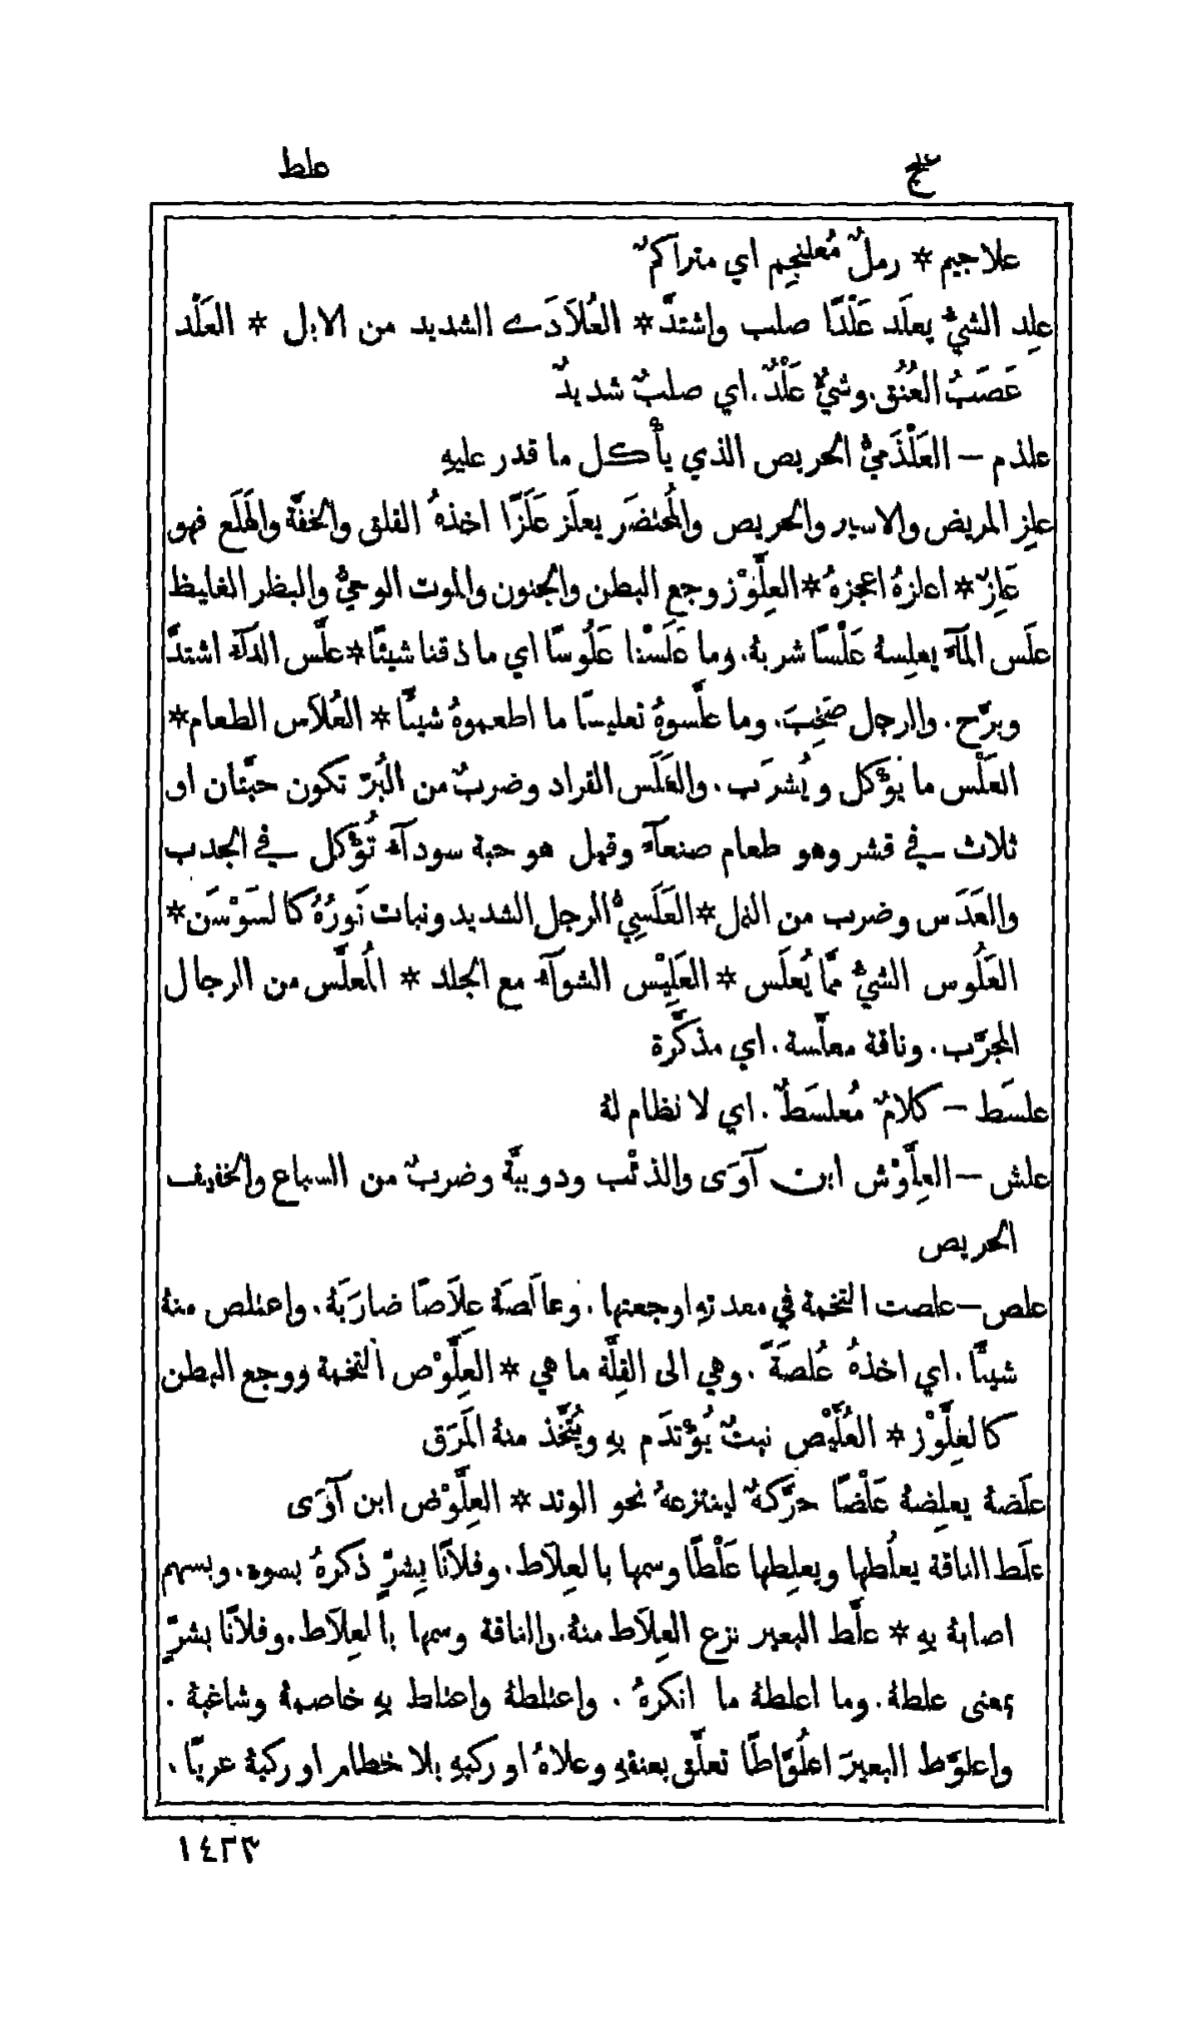 علج
علط
علاجيم * رملٌ مُعلنجِم اي متراكمٌ
علِد الشيءُ يعلَد عَلْدًا صلب واشتدَّ * العُلَادَى الشديد من الابل * العَلْد
عَصَبُ العُنُق. وشيءٌ عَلْدٌ. اي صلبٌ شديدٌ
علذم — العَلْذَميُّ الحريص الذي يأْكل ما قدر عليهِ
علِز المريض والاسير والحريص والمُحتضَر يعلَز عَلَزًا اخذهُ القلق والخفَّة والهَلَع فهو
عَلِزٌ * اعلزهُ اعجزهُ * العِلَّوْز وجع البطن والجنون والموت الوحيُّ والبظر الغليظ
علَس المآءَ يعلِسهُ عَلْسًا شربهُ. وما عَلَسْنا عَلُوسًا اي ما ذقنا شيئًا * علَّس الدآءُ اشتدَّ
وبرَّح. والرجل صَخِبَ. وما علَّسوهُ تعليسًا ما اطعموهُ شيئًا * العُلَاس الطعام *
العَلْس ما يُؤْكل ويُشرَب. والعَلَس القراد وضربٌ من البُرّ تكون حبَّتان او
ثلاث في قشر وهو طعام صنعآءَ وقيل هو حبة سودآءُ تُؤْكل في الجدب
والعَدَس وضرب من النمل * العَلَسِيُّ الرجل الشديد ونبات نَورُهُ كالسَوْسَن *
العَلُوس الشيءُ ممَّا يُعلَس * العَلِيْس الشوآءُ مع الجلد * المُعلَّس من الرجال
المجرَّب. وناقة معلَّسة. اي مذكَّرة
علسَط — كلامٌ مُعلسَطٌ. اي لا نظام لهُ
علش — العِلَّوْش ابن آوَى والذئْب ودويبَّة وضربٌ من السباع والخفيف
الحريص
علص — علصت التخمة في معدتهِ اوجعتها. وعالَصَهُ عِلَاصًا ضارَبَهُ. واعتلص منهُ
شيئًا. اي اخذهُ عُلصَةً. وهي الى القِلَّة ما هي * العِلَّوْص التخمة ووجع البطن
كالعِلَّوْز * العُلَّيْص نبتٌ يُؤْتدَم بهِ ويُتَّخذ منهُ المَرَق
علَضهُ يعلِضهُ عَلْضًا حرَّكهُ لينتزعهُ نحو الوتد * العِلَّوْض ابن آوَى
علَط الناقة يعلُطها ويعلِطها عَلْطًا وسمها بالعِلَاط. وفلانًا بِشرٍّ ذكرهُ بسوء. وبسهم
اصابهُ بهِ * علَّط البعير نزع العِلَاط منهُ. والناقة وسمها بالعِلَاط. وفلانًا بشرٍّ
بمعنى علطهُ. وما اعلطهُ ما انكرهُ. واعتلطهُ واعتلط بهِ خاصمهُ وشاغبهُ.
واعلوَّط البعيرَ اعلُوَّاطًا تعلَّق بعنقهِ وعلاهُ او ركبهِ بلا خطام او ركبهُ عريًا.
١٤٣٣